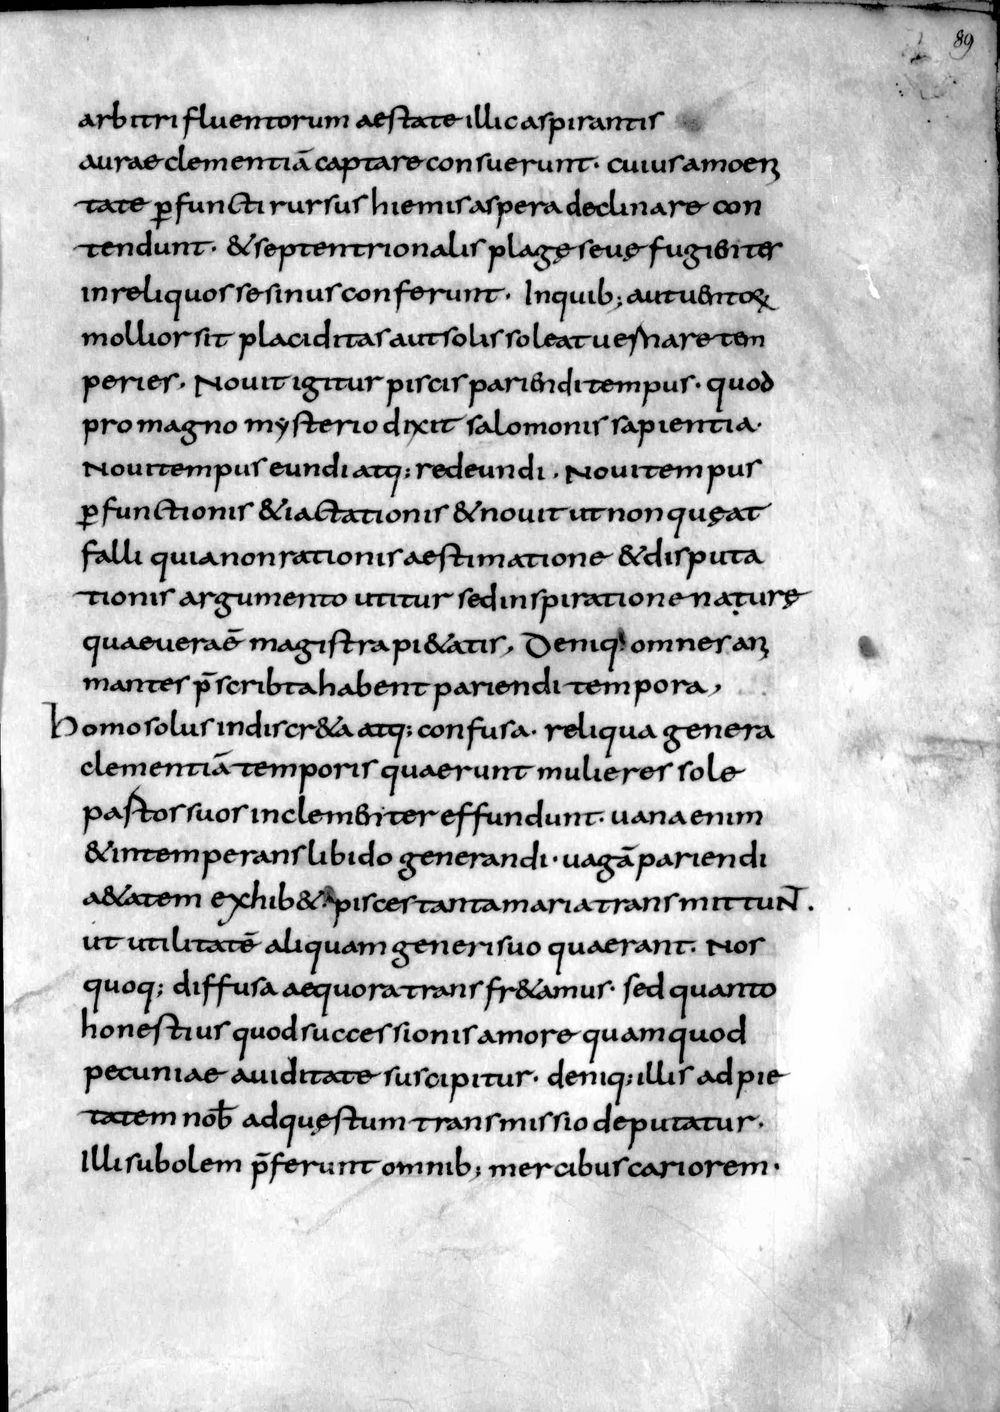 89
arbitri fluentorum aestate illic aspirantis
aurae clementiā captare consuerunt· cuius amoeni
tate p̱functi rursus hiemis aspera declinare con
tendunt· & septentrionalis plagę seuę fugibiter
in reliquos se sinus conferunt· Inquib; aut uentoꝝ
mollior sit placiditas aut solis soleat uernare tem
peries, Nouit igitur piscis pariendi tempus· quod
pro magno mysterio dixit salomonis sapientia·
Noui tempus eundi atq; redeundi, Noui tempus
ꝑfunctionis & iactationis & nouit ut non quęat
falli quia non rationis aestimatione & disputa
tionis argumento utitur sed inspiratione naturę
quae uera ē magistra pi&atis, Deniq; omnes ani
mantes p̄scribta habent pariendi tempora,
homo solus indiscr&a atq; confusa· reliqua genera
clementiā temporis quaerunt mulieres sole
pastos suos inclementer effundunt· uana enim
& intemperans libido generandi· uagā pariendi
a&atem exhib&· pisces tanta maria transmittuNT·
ut utilitatē aliquam generi suo quaerant· Nos
quoq; diffusa aequora transfr&amus· sed quanto
honestius quod successionis amore quam quod
pecuniae auiditate suscipitur· deniq; illis ad pie
tatem nob̄ ad quęstum transmissio deputatur·
Illi subolem p̄ferunt omnib; mercibus cariorem·